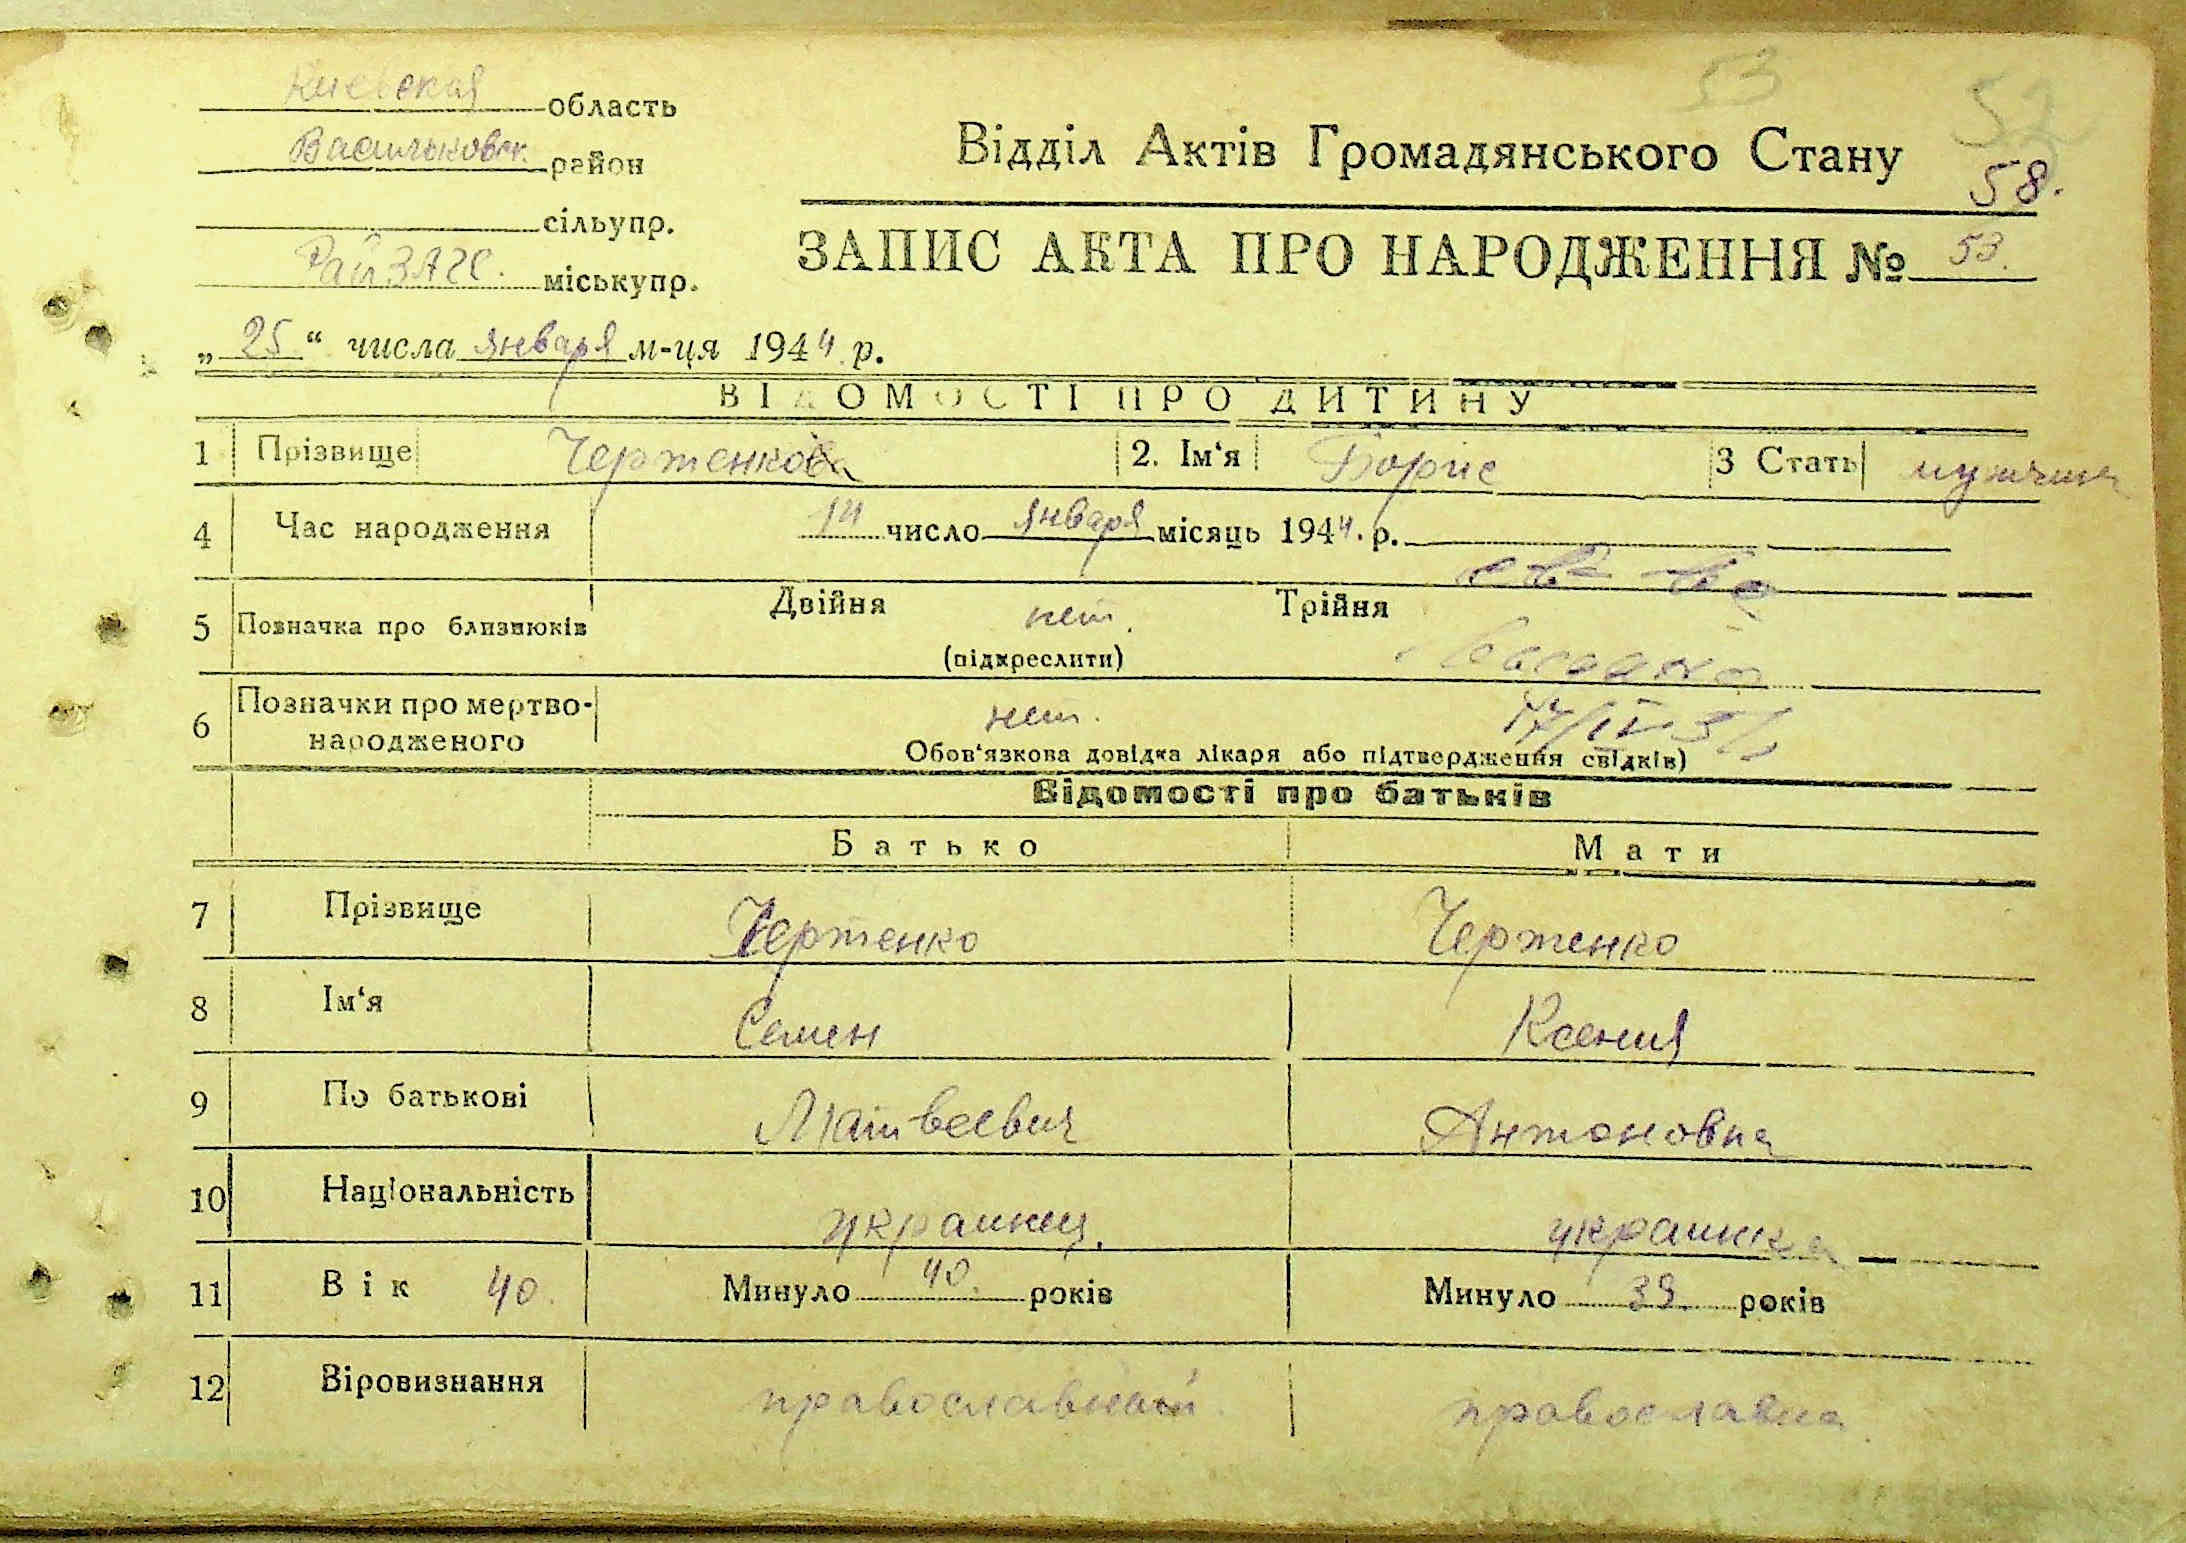 53 52
Киевская область
Васильковск. район
сільупр.
РайЗАГС. міськупр.
Відділ Актів Громадянського Стану 58.
ЗАПИС АКТА ПРО НАРОДЖЕННЯ № 53.
„25“ числа января м-ця 1944 р.
ВІДОМОСТІ ПРО ДИТИНУ
1 Прізвище Чертенко 2. Ім‘я Борис 3 Стать мужчина
4 Час народження 14 число января місяць 1944. р.
5 Позначка про близнюків Двійня нет. Трійня
(підкреслити)
6 Позначки про мертво-
народженого нет. 17/IV
Обов‘язкова довідка лікаря або підтвердження свідків)
Відомості про батьків
Батько Мати
7 Прізвище Чертенко Чертенко
8 Ім‘я Семен Ксения
9 По батькові Матвеевич Антоновна
10 Національність украинец. украинка
11 Вік 40. Минуло 40. років Минуло 39. років
12 Віровизнання православный. православна